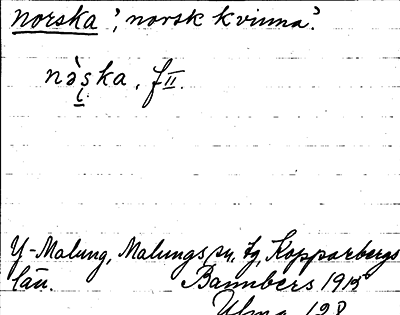 norska ', norsk kvinna'.
nə̀ska, f II.
Y-Malung, Malungs sn. tg, Kopparbergs
län. Bannbers 1915
Ulma 128